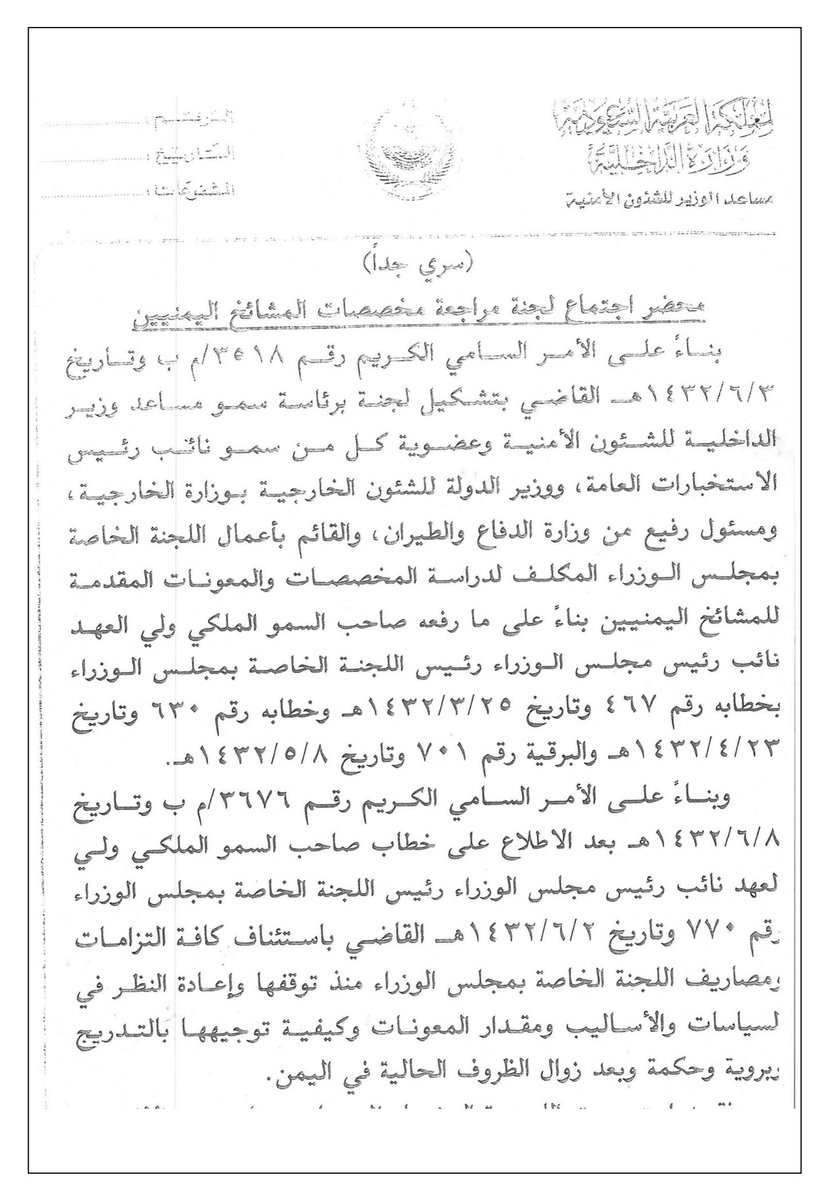 المملكة العربية السعودية
وزارة الداخلية
مساعد الوزير للشئون الأمنية
الرقم :
التاريخ :
المشفوعات :
(سري جداً)
محضر اجتماع لجنة مراجعة مخصصات المشائخ اليمنيين
بناءً على الأمر السامي الكريم رقم ٣٥١٨/م ب وتاريخ
١٤٣٢/٦/٣هـ القاضي بتشكيل لجنة برئاسة سمو مساعد وزير
الداخلية للشئون الأمنية وعضوية كل من سمو نائب رئيس
الاستخبارات العامة، ووزير الدولة للشئون الخارجية بوزارة الخارجية،
ومسئول رفيع من وزارة الدفاع والطيران، والقائم بأعمال اللجنة الخاصة
بمجلس الوزراء المكلف لدراسة المخصصات والمعونات المقدمة
للمشائخ اليمنيين بناءً على ما رفعه صاحب السمو الملكي ولي العهد
نائب رئيس مجلس الوزراء رئيس اللجنة الخاصة بمجلس الوزراء
بخطابه رقم ٤٦٧ وتاريخ ١٤٣٢/٣/٢٥هـ وخطابه رقم ٦٣٠ وتاريخ
١٤٣٢/٤/٢٣هـ والبرقية رقم ٧٠١ وتاريخ ١٤٣٢/٥/٨هـ.
وبناءً على الأمر السامي الكريم رقم ٣٦٧٦/م ب وتاريخ
١٤٣٢/٦/٨هـ بعد الاطلاع على خطاب صاحب السمو الملكي ولي
لعهد نائب رئيس مجلس الوزراء رئيس اللجنة الخاصة بمجلس الوزراء
رقم ٧٧٠ وتاريخ ١٤٣٢/٦/٢هـ القاضي باستئناف كافة التزامات
ومصاريف اللجنة الخاصة بمجلس الوزراء منذ توقفها وإعادة النظر في
لسياسات والأساليب ومقدار المعونات وكيفية توجيهها بالتدريج
وبروية وحكمة وبعد زوال الظروف الحالية في اليمن.